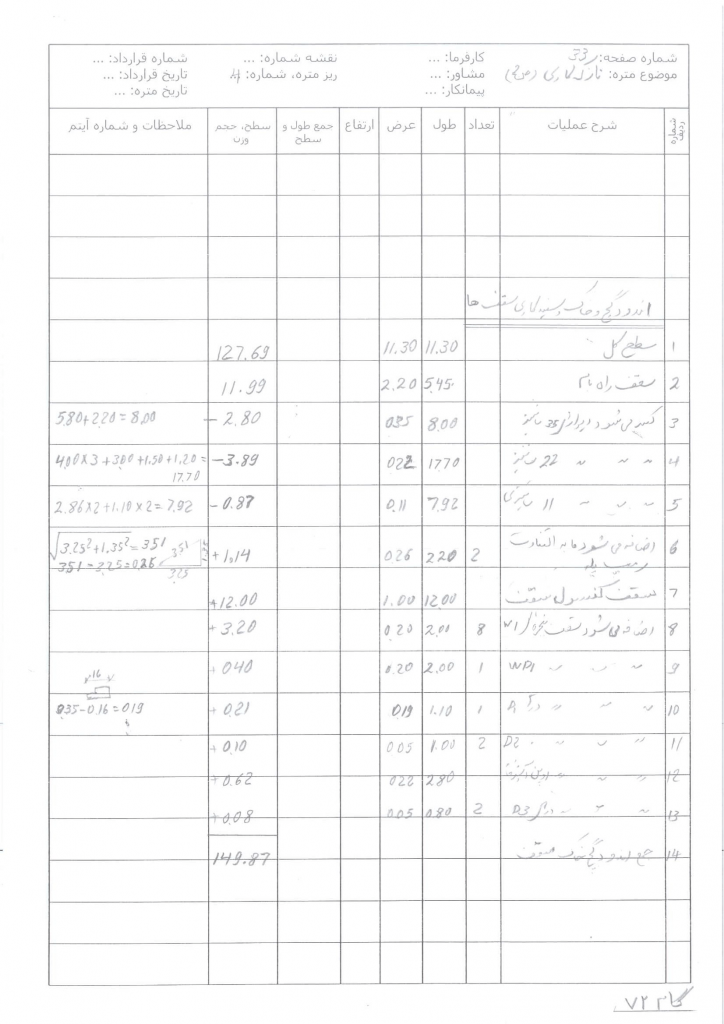 شماره صفحه: 33 کارفرما: ... نقشه شماره: ... شماره قرارداد: ...
موضوع متره: نازک کاری مشاور: ... ریز متره، شماره: تاریخ قرارداد: ...
پیمانکار: ... تاریخ متره: ...
شماره ردیف شرح عملیات تعداد طول عرض ارتفاع جمع طول و سطح سطح، حجم وزن ملاحظات و شماره آیتم
اندود گچ و خاک و سفید کاری سقف ها
1 سطح کل 11.30 11.30 127.69
2 سقف راه 5.45 2.20 11.99
3 کسر می شود دیوارهای 35 8.00 0.35 - 2.80 5.80+2.20=8.00
4 " " " 22 17.70 0.22 -3.89 4.00×3+3.00+1.50+1.20=
17.70
5 " " " 11 7.92 0.11 -0.87 2.86×2+1.10×2=7.92
6 اضافه می شود مابه التفاوت 2 2.20 0.26 +1.14 √3.25²+1.35²=3.51
پله 3.51-3.25=0.26
3.51 1.35 3.25
7 سقف کنسول سقف 12.00 1.00 +12.00
8 اضافه می شود سقف پنجره W1 8 2.00 0.20 +3.20
9 " " " WP1 1 2.00 0.20 +0.40
16
10 " " " در 1 1.10 0.19 +0.21 0.35-0.16=0.19
11 " " " D2 2 1.00 0.05 +0.10
12 " " " اوپن آشپزخانه 2.80 0.22 +0.62
13 " " " در D3 2 0.80 0.05 +0.08
14 جمع اندود گچ خاک سقف 149.87
گام 72